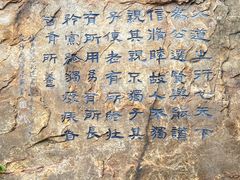 大道之行也天下
為公選賢與能講
信脩睦故人不獨
親其親不獨子其
子使老有所終壯
有所用幼有所長
矜寡孤獨廢疾者
皆有所養